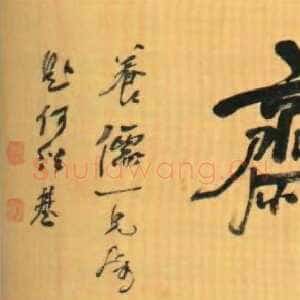 齋
養儒一兄屬
題何紹基
shufawang.cn